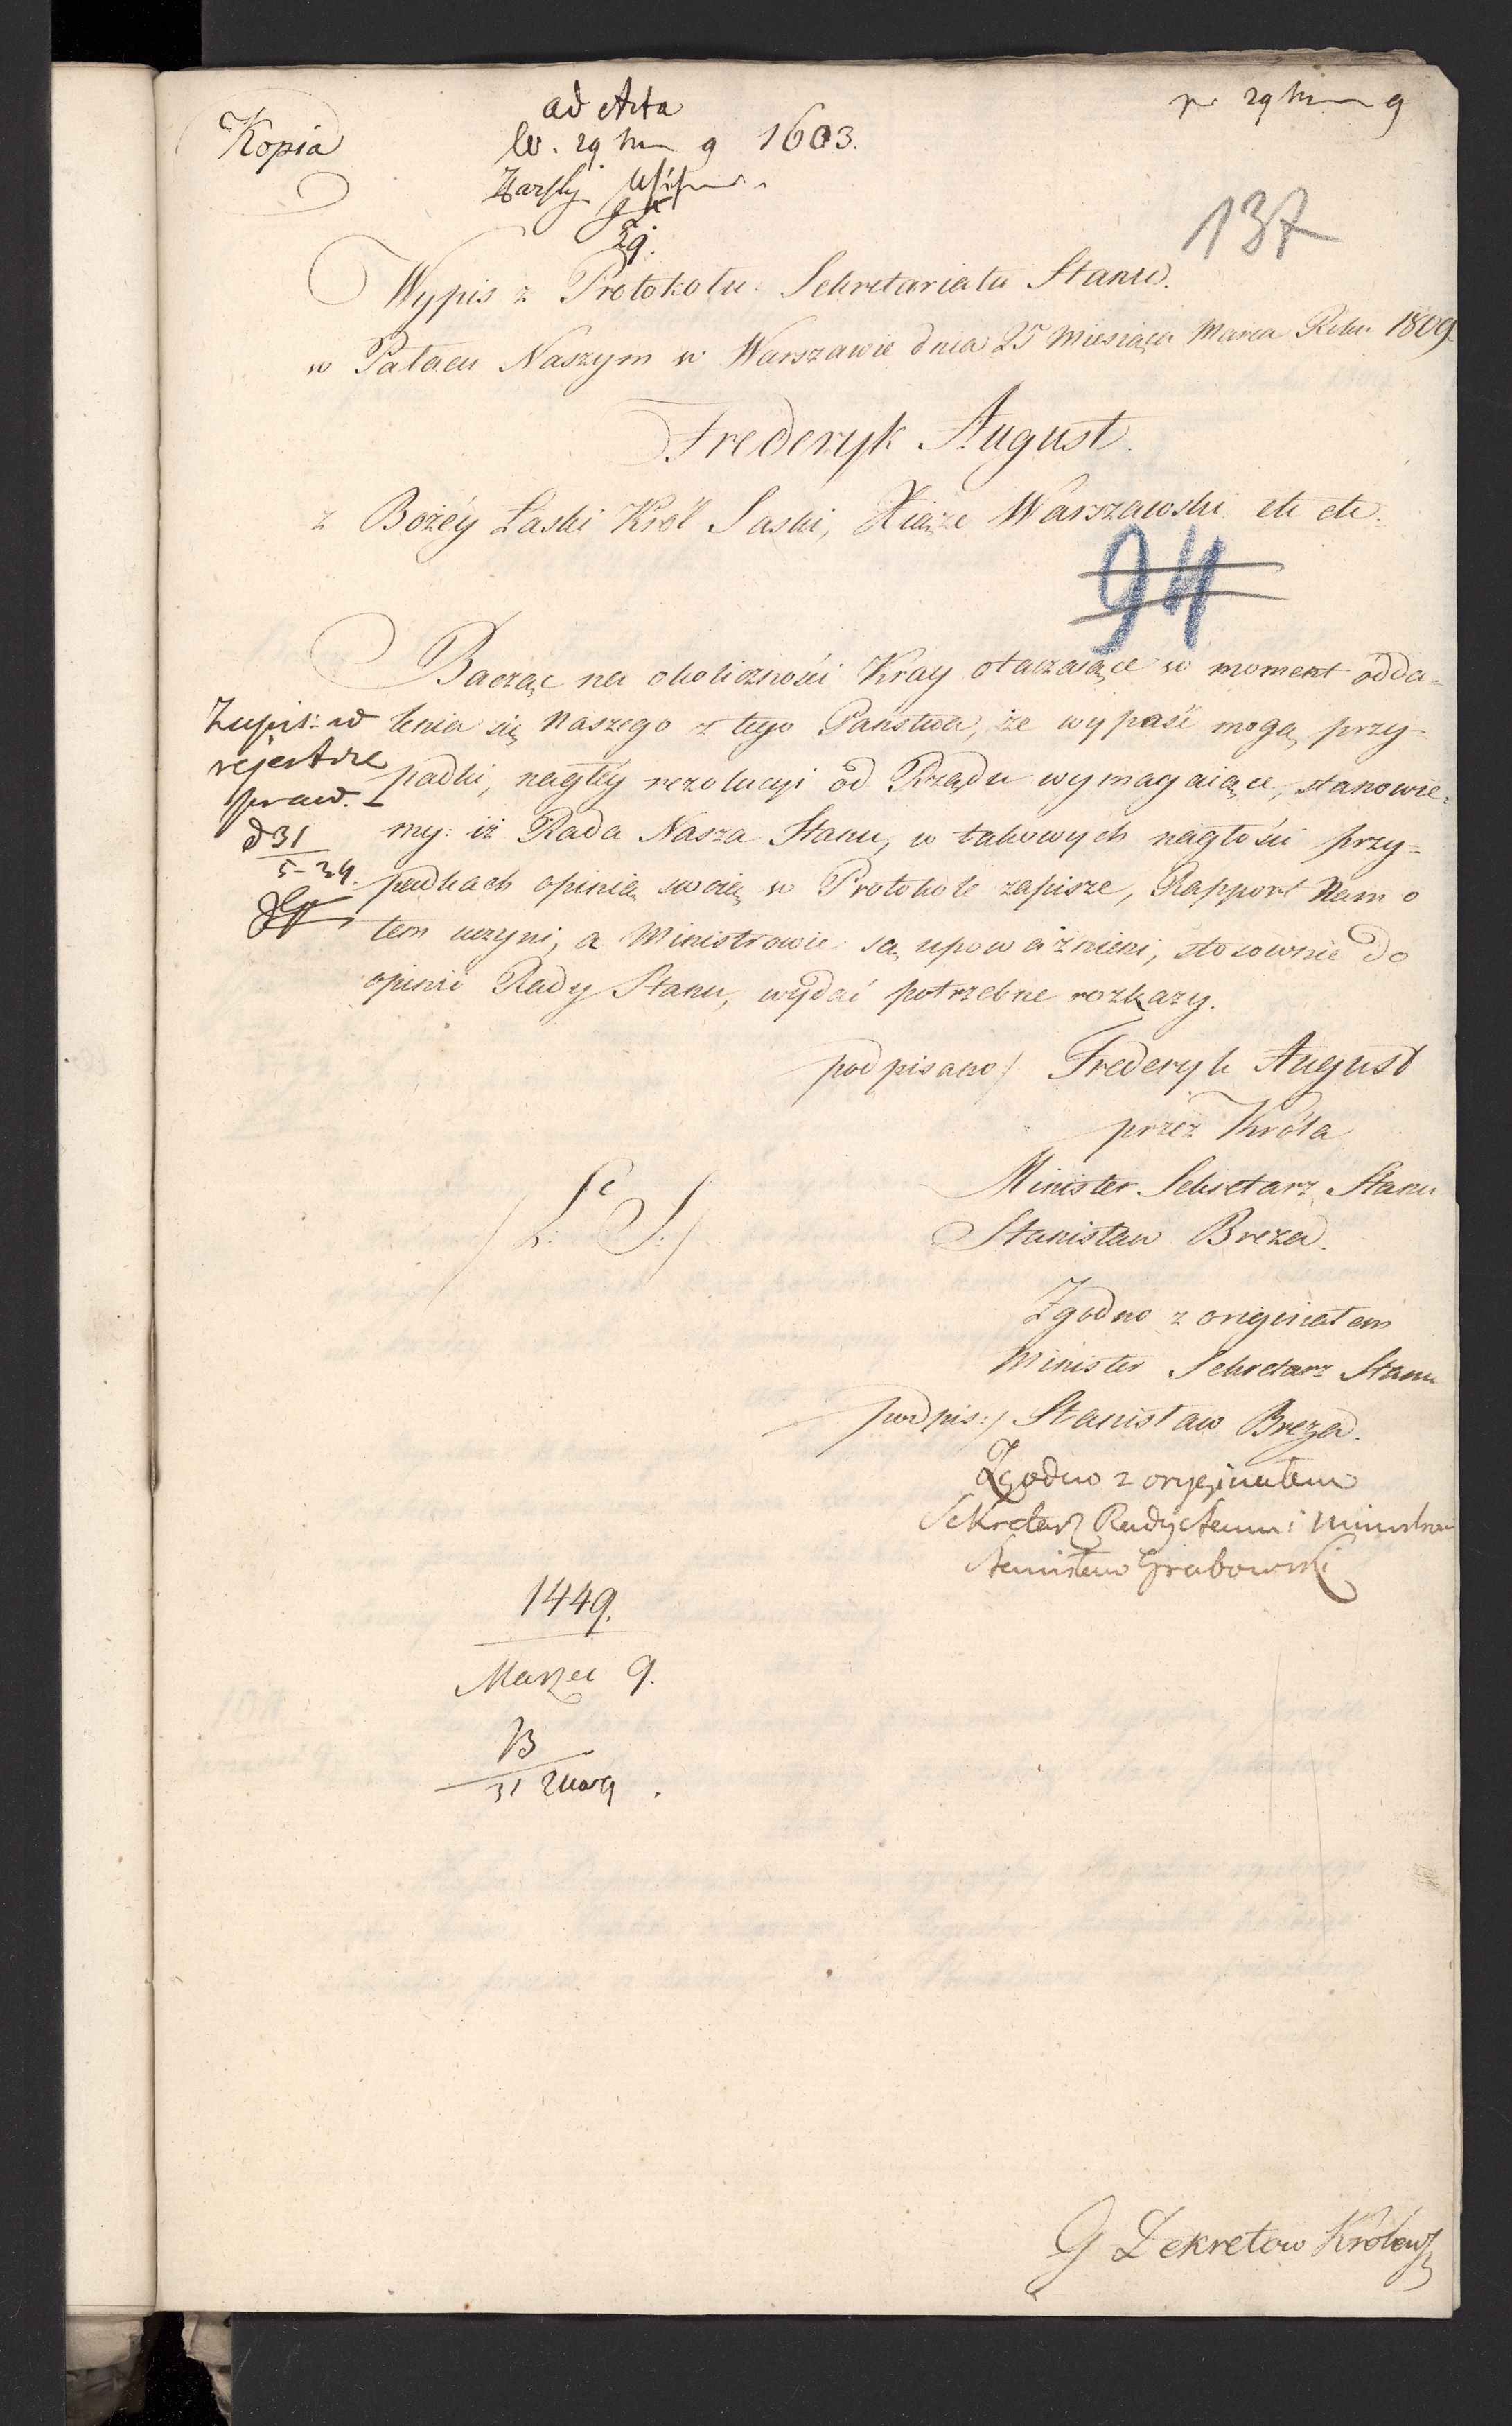 Kopia
ad Acta
29 9 1603.
29 9
29.
137
Wypis z Protokołu Sekretariatu Stanu.
w Pałacu Naszym w Warszawie dnia 25 Miesiąca Marca Roku 1809.
Frederyk August.
z Bożéy Łaski Król Saski, Xiąże Warszawski etc etc.
94
Bacząc na okoliczności Kray otaczaiące w moment odda-
lenia się Naszego z tego Państwa, że wypaść mogą przy-
padki, nagłéy rezolucyi od Rządu wymagaiące, stanowie-
my: iż Rada Nasza Stanu, w takowych nagłości przy-
padkach opinią swoią w Protokole zapisze, Rapport Nam o
tem uczyni, a Ministrowie są upoważnieni, stosownie do
opinii Rady Stanu, wydać potrzebne rozkazy.
Zapis: w
rejestrze
praw.
d 31
5-29.
podpisano/ Frederyk August
przez Króla
Minister Sekretarz Stanu
/L: S:/
Stanisław Breza.
Zgodno z originałem
Minister Sekretarz Stanu
podpis:/ Stanisław Breza.
Zgodno z oryginałem
Sekretarz Rady Stanu i Ministrów
Stanisław Grabowski
1449.
Marzec 9.
B
31 Mar 9.
G Dekretow Królew